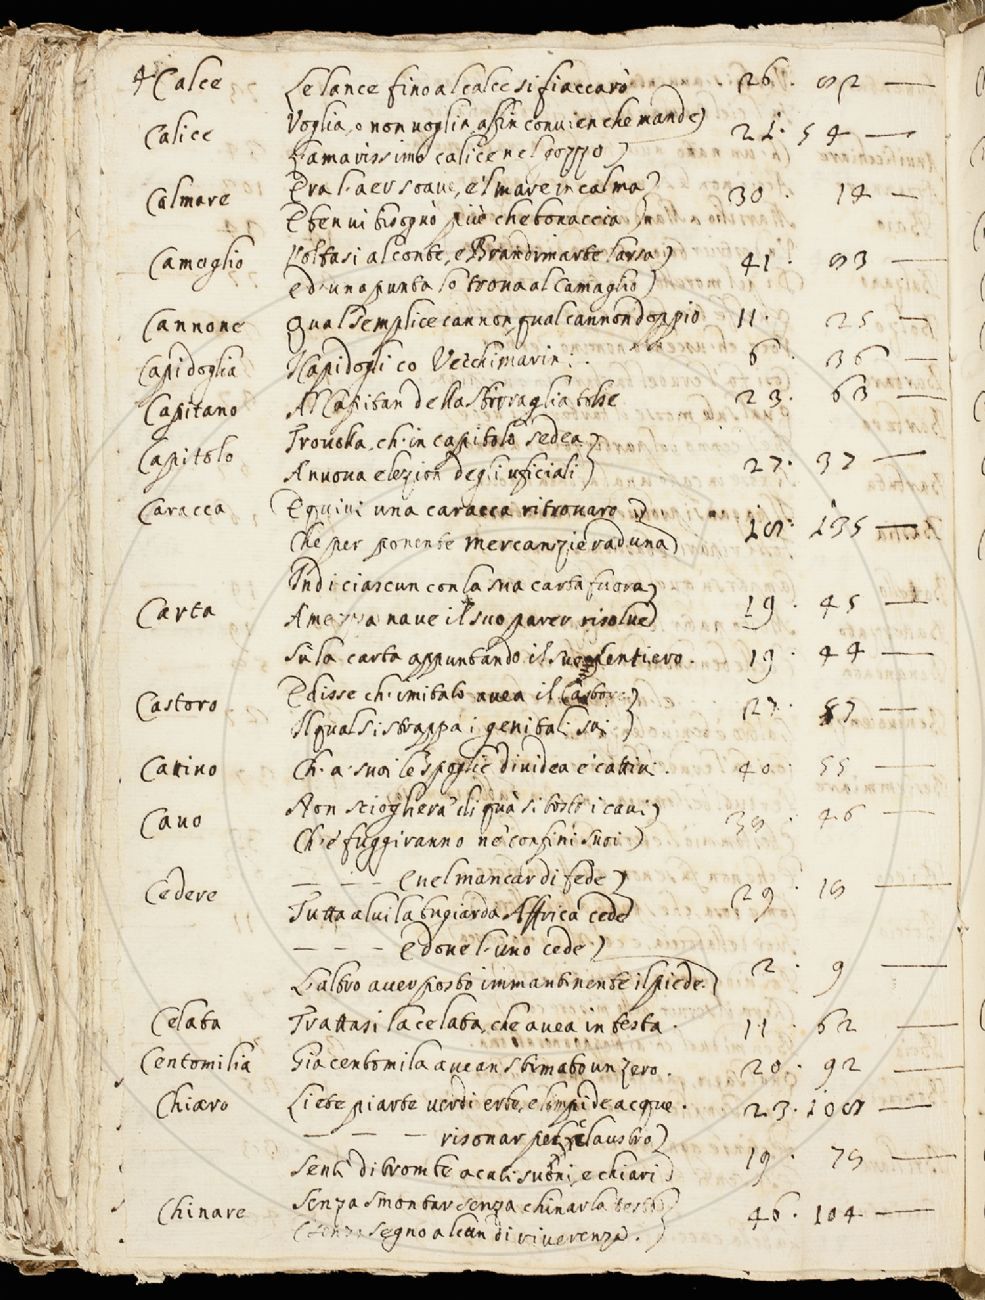 Calce Le lance fino al calce si fiaccarò 26. 82
Calice Voglia, o non voglia, alfin convien che mande
L'amarissimo calice nel gozzo 21. 54
Calmare Era l'aer soave, e'l mare in calma
E ben vi bisognò più che bonaccia 30 14
Camaglio Voltasi al conte, e Brandimarte lassa
ed una punta lo trova al Camaglio 41. 83
Cannone Qual semplice cannon, qual cannon doppio 11. 25
Capidoglia Capidogli co Vecchi marin. 6. 36
Capitano Al Capitan della sbirraglia tolse 23. 63
Capitolo Trovolla, ch'in capitolo sedea
A nuova elezion degli uficiali 27. 37
Caracca E quivi una caracca ritrovaro
Che per ponente mercanzie raduna 18. 135
Indi ciascun con la sua carta fuora
Carta A mezza nave il suo parer risolve 19. 45
Su la carta appuntando il suo sentiero. 19. 44
Castoro E disse ch'imitato avea il Castore
Il qual si strappa i genitali sui 27. 57
Cattivo Ch'a' suoi le spoglie dividea e' cattivi. 40. 55
Cavo Non scioglierà di quà sì tosto i cavi
Ch'e' fuggiranno ne' confini suoi 38. 46
Cedere — — — e nel mancar di fede
Tutta a lui la bugiarda Affrica cede 29. 18
— — — e dove l'uno cede
L'altro aver posto immantinente il piede. 2. 9
Celata Trattasi la celata, che avea in testa. 11. 62
Centomilia Già centomila avean stimato un zero. 20. 92
Chiaro Liete piante verdi erbe, e limpide acque. 23. 108
— — — risonar pel claustro
Senti di trombe acuti suoni, e chiari 19. 78
Chinare Senza smontar senza chinar la testa
E senza segno alcun di riverenza. 46. 104